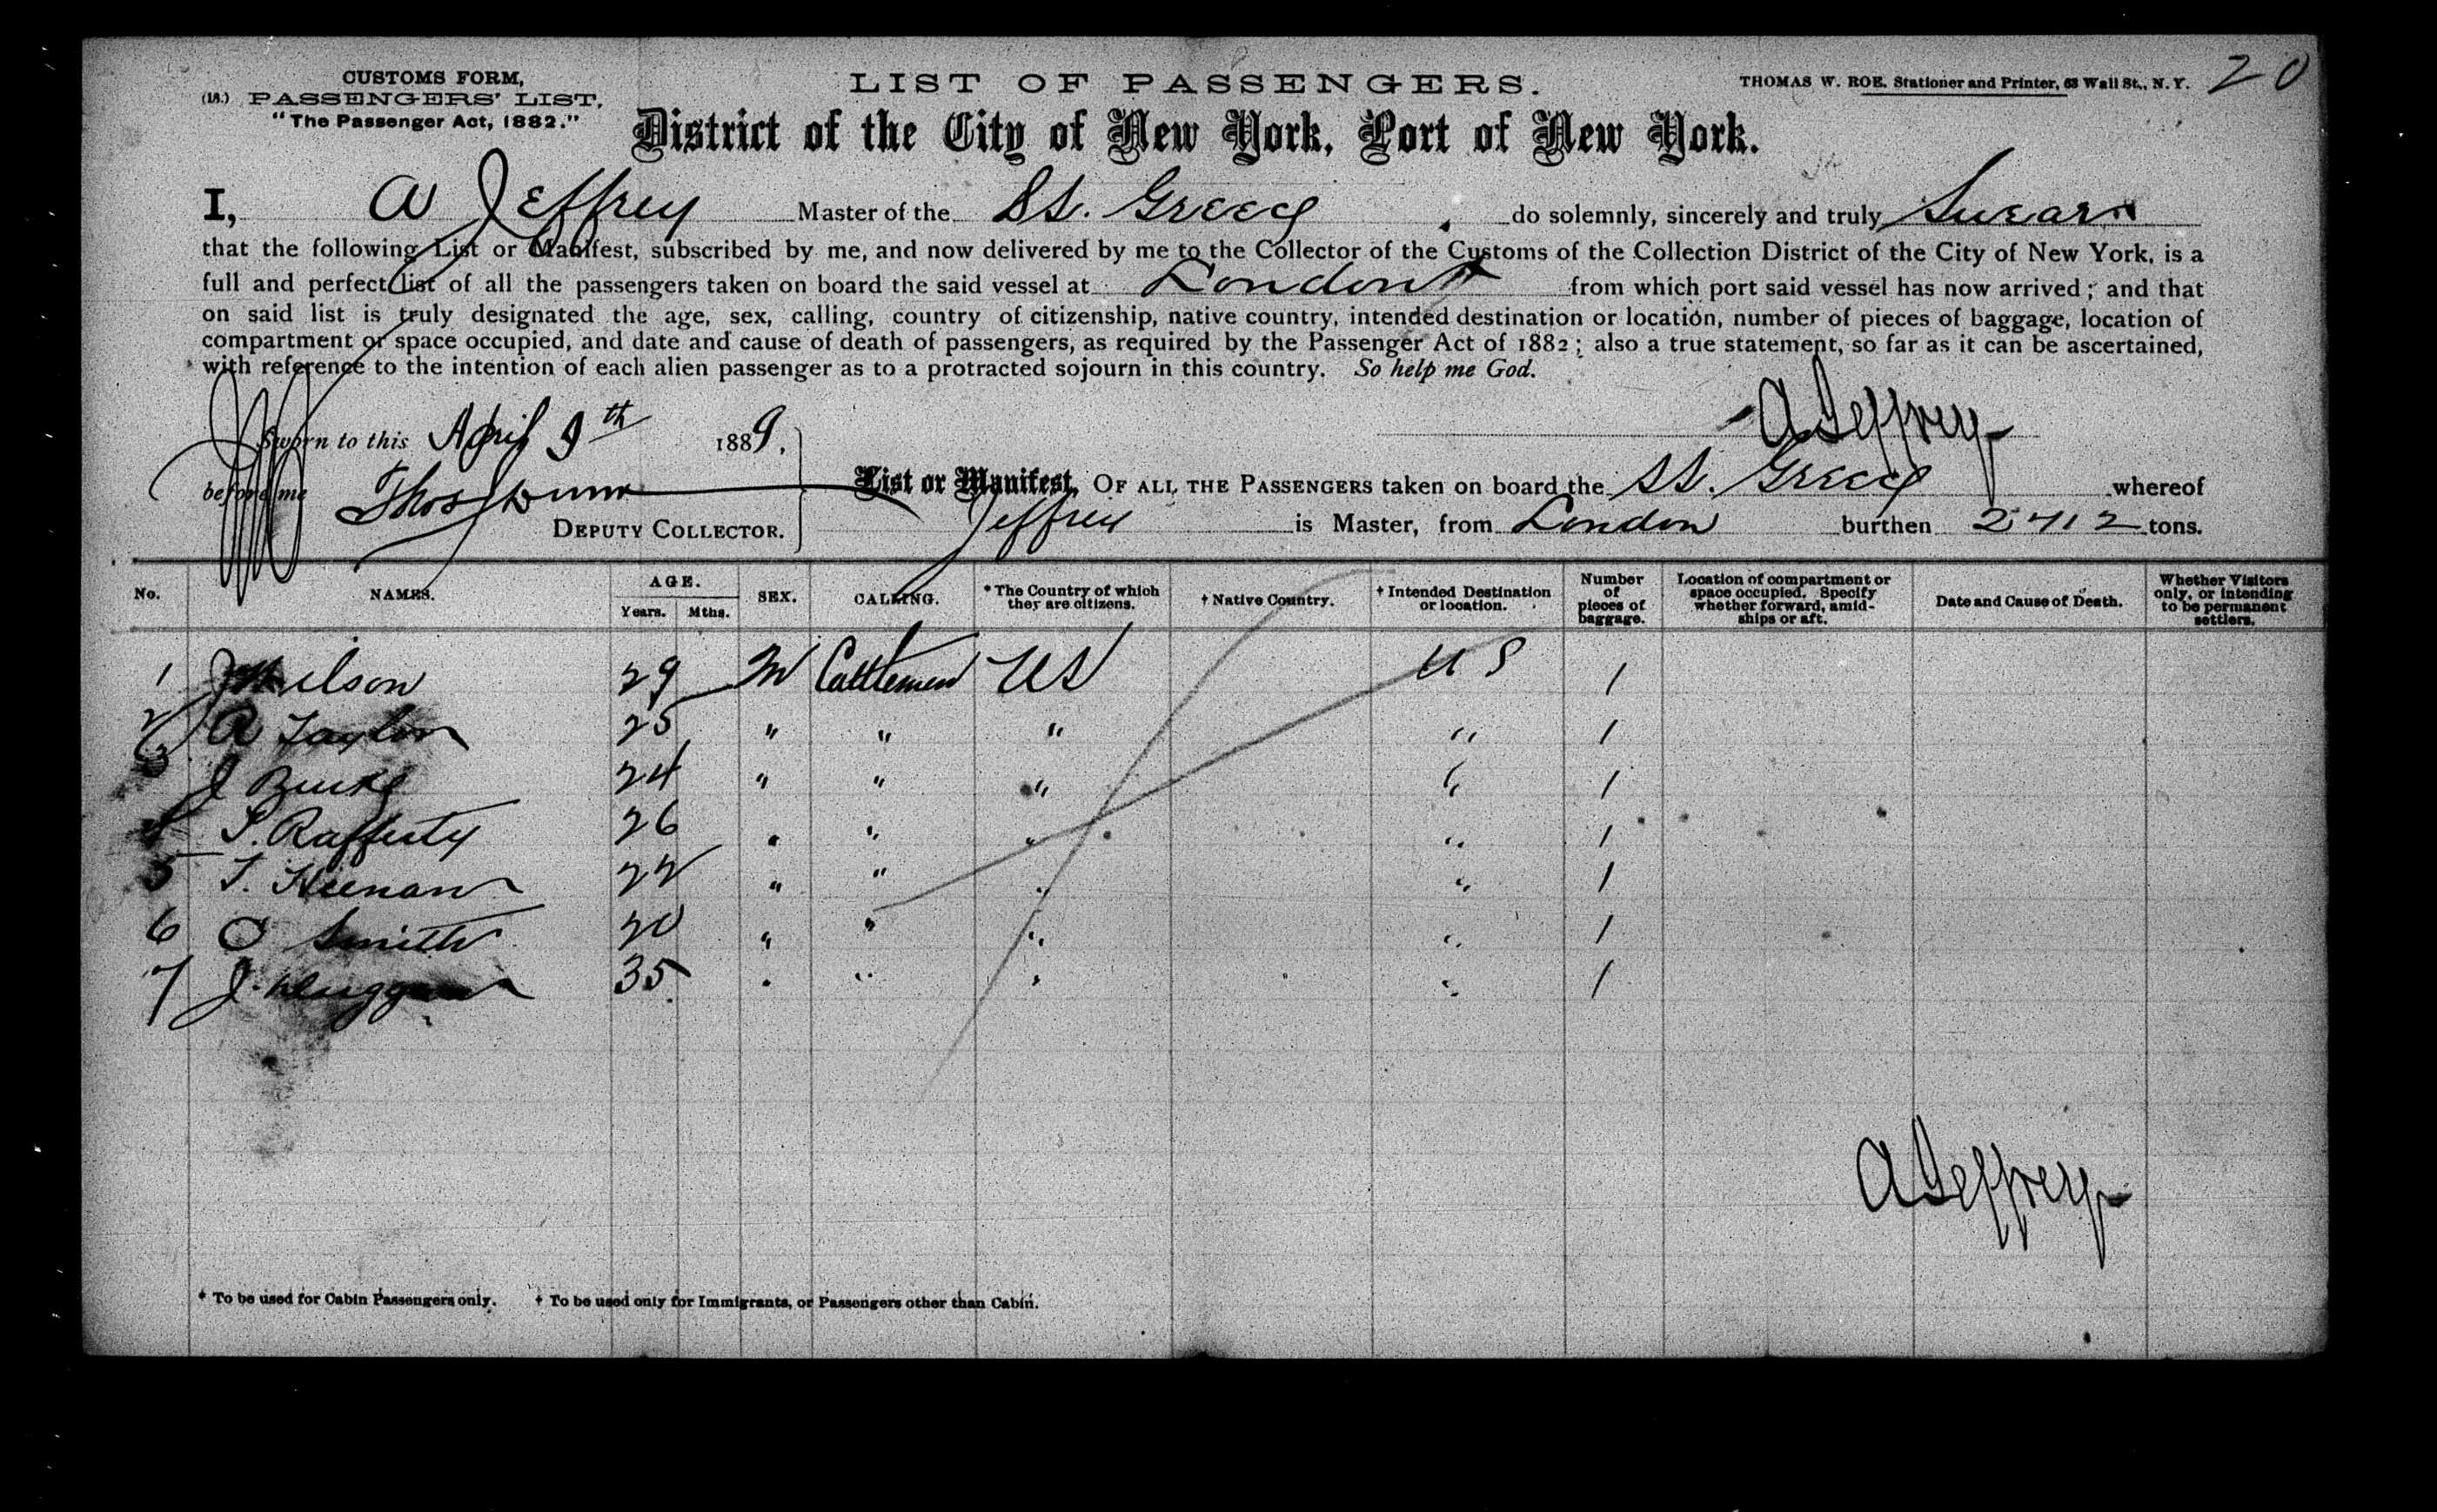 CUSTOMS FORM,
(18.) PASSENGERS' LIST,
"The Passenger Act, 1882."
LIST OF PASSENGERS.
THOMAS W. ROE, Stationer and Printer, 63 Wall St., N. Y.
20
District of the City of New York, Port of New York.
I, A Jeffrey Master of the SS. Greece, do solemnly, sincerely and truly Swear
that the following List or Manifest, subscribed by me, and now delivered by me to the Collector of the Customs of the Collection District of the City of New York, is a
full and perfect list of all the passengers taken on board the said vessel at London from which port said vessel has now arrived; and that
on said list is truly designated the age, sex, calling, country of citizenship, native country, intended destination or location, number of pieces of baggage, location of
compartment or space occupied, and date and cause of death of passengers, as required by the Passenger Act of 1882; also a true statement, so far as it can be ascertained,
with reference to the intention of each alien passenger as to a protracted sojourn in this country. So help me God.
A Jeffrey
Sworn to this April 9th 1889.
before me Thos Dunn
DEPUTY COLLECTOR.
List or Manifest, OF ALL THE PASSENGERS taken on board the SS. Greece whereof
Jeffrey is Master, from London burthen 2712 tons.
No. NAMES. AGE. Years. Mths. SEX. CALLING. * The Country of which they are citizens. † Native Country. † Intended Destination or location. Number of pieces of baggage. Location of compartment or space occupied. Specify whether forward, amidships or aft. Date and Cause of Death. Whether Visitors only, or intending to be permanent settlers.
1 J Wilson 29 M Cattlemen US US 1
2 A Taylor 25 " " " " 1
3 J Burke 24 " " " " 1
4 S. Rafferty 26 " " " " 1
5 T. Keenan 22 " " " " 1
6 O Smith 20 " " " " 1
7 J. Duggan 35 " " " " 1
A Jeffrey
* To be used for Cabin Passengers only. † To be used only for Immigrants, or Passengers other than Cabin.